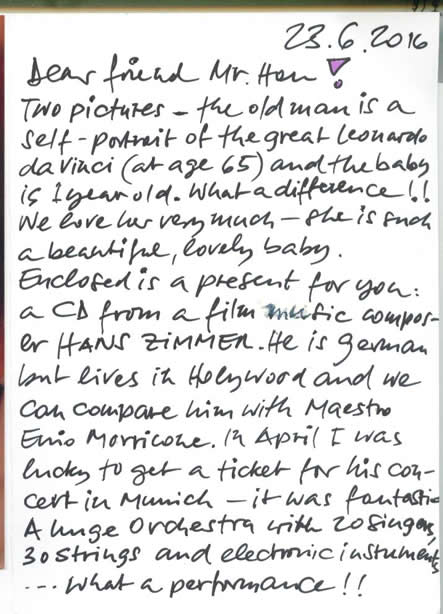 23.6.2016
Dear friend Mr. Han!
Two pictures – the old man is a
self-portrait of the great Leonardo
da Vinci (at age 65) and the baby
is 1 year old. What a difference!!
We love her very much – she is such
a beautiful, lovely baby.
Enclosed is a present for you:
a CD from a film music compos-
er HANS ZIMMER. He is german
but lives in Holywood and we
can compare him with Maestro
Enio Morricone. In April I was
lucky to get a ticket for his con-
cert in Munich – it was fantastic
A huge Orchestra with 20 singers,
30 strings and electronic instuments
... What a performance!!